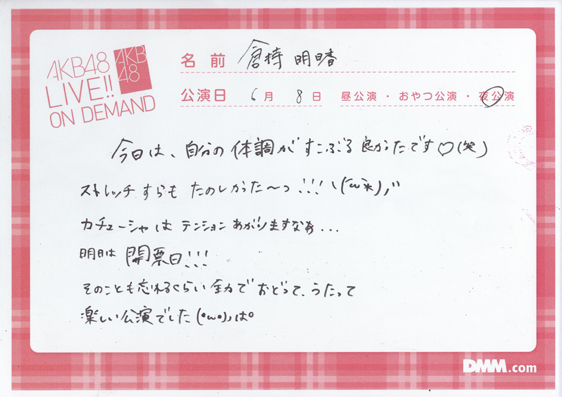 AKB48
LIVE!!
ON DEMAND
AKB
48
名前 倉持明日香
公演日 6月 8日 昼公演・おやつ公演・夜公演
今日は、自分の体調がすこぶる良かたです♡(笑)
ストレッチすらも たのしかった〜っ!!!
カチューシャは テンションあがりますなぁ...
明日は 開票日!!!
そのことも忘れるくらい 全力で おどって、うたって
楽しい公演でした(°ω°)
DMM.com